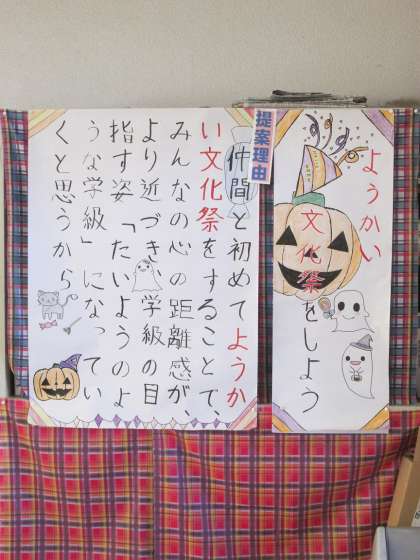 ようかい
文化祭をしよう
提案理由
仲間と初めてようか
い文化祭をすることで、
みんなの心の距離感が、
より近づき、学級の目
指す姿「たいようのよ
うな学級」になってい
くと思うから